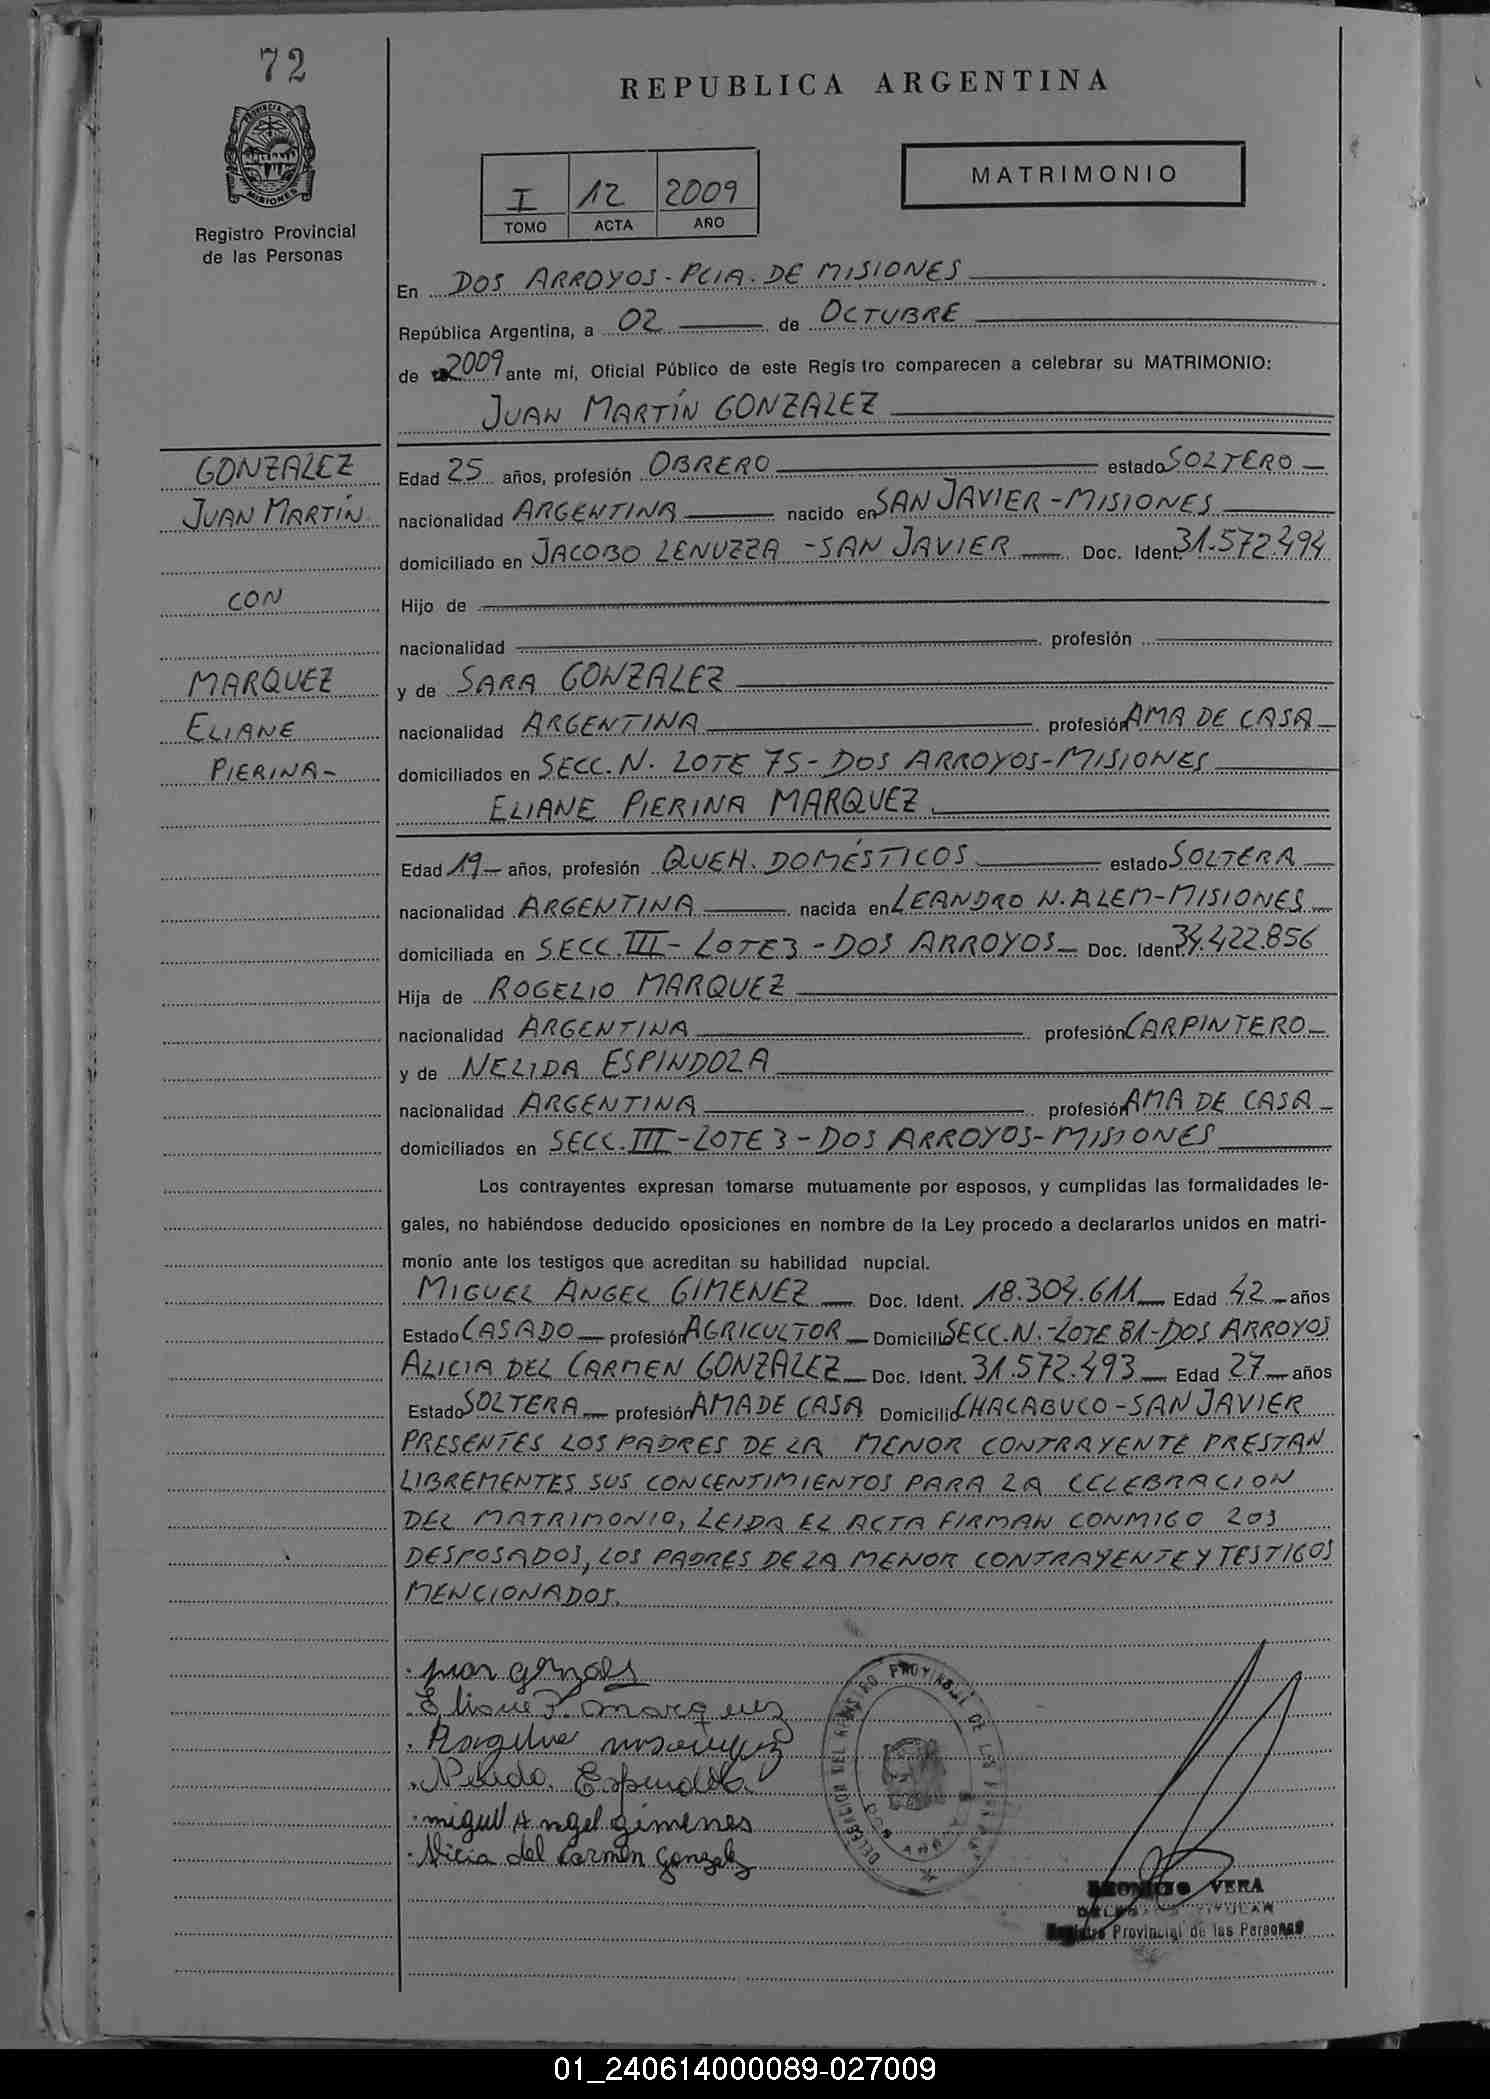 72
REPUBLICA ARGENTINA
PROVINCIA
MISIONES
Registro Provincial
de las Personas
I 12 2009
TOMO ACTA AÑO
MATRIMONIO
En DOS ARROYOS - PCIA. DE MISIONES
República Argentina, a 02 de OCTUBRE
de 2009 ante mí, Oficial Público de este Regis tro comparecen a celebrar su MATRIMONIO:
JUAN MARTÍN GONZALEZ
GONZALEZ
JUAN MARTÍN
CON
MARQUEZ
ELIANE
PIERINA-
Edad 25 años, profesión OBRERO estado SOLTERO
nacionalidad ARGENTINA nacido en SAN JAVIER - MISIONES
domiciliado en JACOBO LENUZZA - SAN JAVIER Doc. Ident. 31.572.494
Hijo de
nacionalidad profesión
y de SARA GONZALEZ
nacionalidad ARGENTINA profesión AMA DE CASA
domiciliados en SECC. N. LOTE 75 - DOS ARROYOS - MISIONES
ELIANE PIERINA MARQUEZ
Edad 19 años, profesión QUEH. DOMÉSTICOS estado SOLTERA
nacionalidad ARGENTINA nacida en LEANDRO N. ALEM - MISIONES
domiciliada en SECC. III - LOTE 3 - DOS ARROYOS Doc. Ident. 34.422.856
Hija de ROGELIO MARQUEZ
nacionalidad ARGENTINA profesión CARPINTERO
y de NELIDA ESPINDOLA
nacionalidad ARGENTINA profesión AMA DE CASA
domiciliados en SECC. III - LOTE 3 - DOS ARROYOS - MISIONES
Los contrayentes expresan tomarse mutuamente por esposos, y cumplidas las formalidades le-
gales, no habiéndose deducido oposiciones en nombre de la Ley procedo a declararlos unidos en matri-
monio ante los testigos que acreditan su habilidad nupcial.
MIGUEL ANGEL GIMENEZ Doc. Ident. 18.304.611 Edad 42 años
Estado CASADO profesión AGRICULTOR Domicilio SECC. N. - LOTE 81 - DOS ARROYOS
ALICIA DEL CARMEN GONZALEZ Doc. Ident. 31.572.493 Edad 27 años
Estado SOLTERA profesión AMA DE CASA Domicilio CHACABUCO - SAN JAVIER
PRESENTES LOS PADRES DE LA MENOR CONTRAYENTE PRESTAN
LIBREMENTES SUS CONCENTIMIENTOS PARA LA CELEBRACION
DEL MATRIMONIO, LEIDA EL ACTA FIRMAN CONMIGO LOS
DESPOSADOS, LOS PADRES DE LA MENOR CONTRAYENTE Y TESTIGOS
MENCIONADOS.
Juan Gonzales
Eliane P. Marquez
Nelida Espindola
miguel Angel gimenes
Alicia del carmen Gonzalez
DELEGACION DEL REGISTRO PROVINCIAL DE LAS PERSONAS
VERA
TITULAR
Registro Provincial de las Personas
01_240614000089-027009